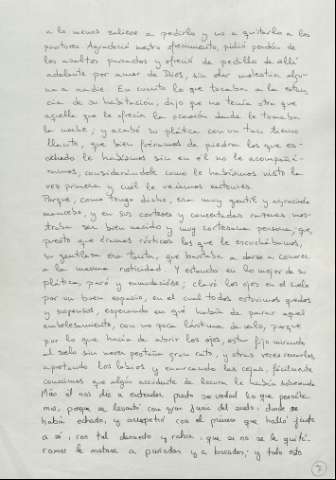 a lo menos saliese a pedirlo y no a quitarlo a los
pastores. Agradeció nuestro ofrecimiento, pidió perdón de
los asaltos pasados y ofreció de pedillo de allí
adelante por amor de Dios, sin dar molestia algu-
na a nadie. En cuanto lo que tocaba a la estan
cia de su habitación, dijo que no tenía otra que
aquella que le ofrecía la ocasión donde le tomaba
la noche; y acabó su plática con un tan tierno
llanto, que bien fuéramos de piedra los que es-
cuchado le habíamos si en él no le acompañá-
ramos, considerándole como le habíamos visto la
vez primera y cuál le veíamos entonces.
Porque, como tengo dicho, era muy gentil y agraciado
mancebo, y en sus corteses y concertadas razones mos-
traba ser bien nacido y muy cortesana persona; que,
puesto que éramos rústicos los que le escuchábamos,
su gentileza era tanta, que bastaba a darse a conocer
a la mesma rusticidad. Y estando en lo mejor de su
plática, paró y enmudecióse; clavó los ojos en el suelo
por un buen espacio, en el cual todos estuvimos quedos
y suspensos, esperando en qué había de parar aquel
embelesamiento, con no poca lástima de verlo, porque
por lo que hacía de abrir los ojos, estar fijo mirando
al suelo sin mover pestaña gran rato, y otras veces cerrarlos,
apretando los labios y enarcando las cejas, fácilmente
conocimos que algún accidente de locura le había sobrevenido.
Mas él nos dio a entender presto ser verdad lo que pensába-
mos, porque se levantó con gran furia del suelo, donde se
había echado, y arremetió con el primero que halló junto
a sí, con tal denuedo y rabia, que si no se le quitá-
ramos le matara a puñadas y a bocados; y todo esto